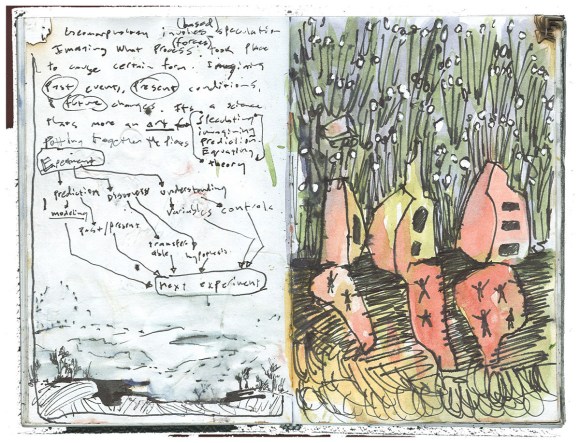 (based)
Geomorphology involves speculation
(forces)
Imagining What process took place
to cause certain form. Imagining
past events, present conditions,
& future changes. It's a science
thats more an art for
Putting together the pieces
Speculating
imagining
Prediction
Equating
theory
Experiment
prediction Discovery understanding
modeling variables controls
past/present
transfer
able hypothesis
next experiment